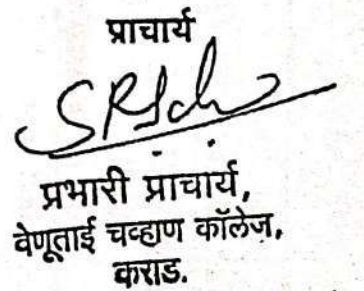 प्राचार्य
प्रभारी प्राचार्य,
वेणूताई चव्हाण कॉलेज,
कराड.